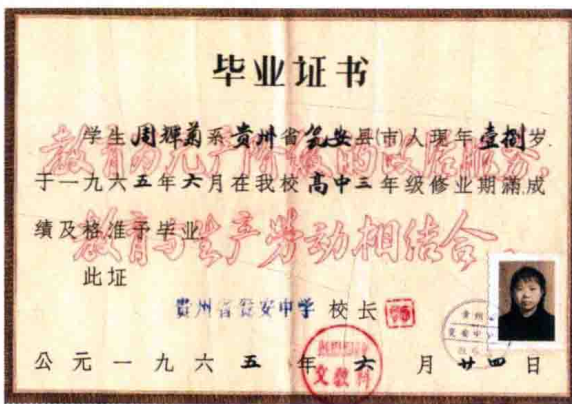 毕业证书
学生周辉菊系贵州省瓮安县(市)人现年壹捌岁
于一九六五年六月在我校高中三年级修业期满成
绩及格准予毕业
此证
教育为无产阶级的政治服务,
教育与生产劳动相结合。
贵州省瓮安中学 校长
文教科
公元一九六五年六月廿四日